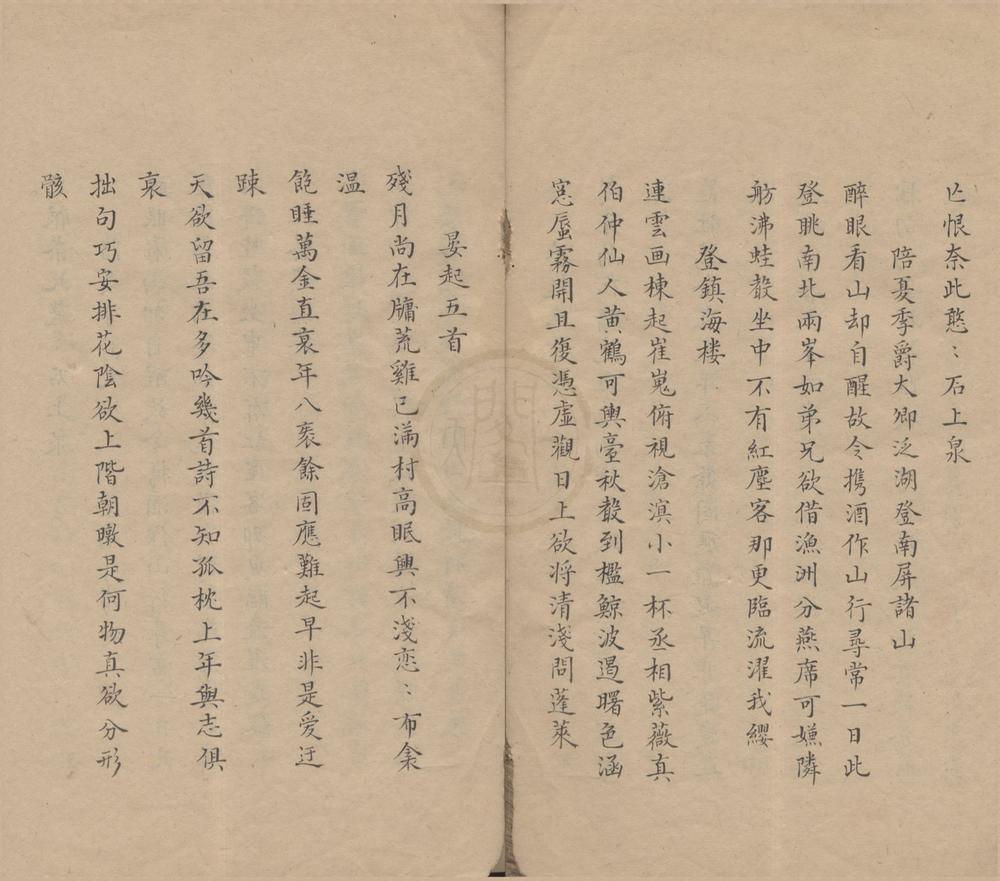 亾恨奈此憨〻石上泉
陪憂季爵大卿泛湖登南屏諸山
醉眼看山却自醒故令携酒作山行尋常一日此
登眺南北兩峯如弟兄欲借漁洲分燕席可嫌隣
舫沸蛙㲈坐中不有紅塵客那更臨流濯我纓
登鎮海楼
連雲画棟起崔嵬俯視滄溟小一杯丞相紫薇真
伯仲仙人黄鶴可輿臺秋㲈到檻鯨波遏曙色涵
窓蜃霧開且復憑虛觀日上欲将清淺問蓬萊
晏起五首
殘月尚在牗荒雞已滿村高眠興不淺恋〻布衾
温
飽睡萬金直衰年八袠餘固應難起早非是爱迂
踈
天欲留吾在多吟幾首詩不知孤枕上年與志俱
衰
拙句巧安排花陰欲上階朝暾是何物真欲分形
骸